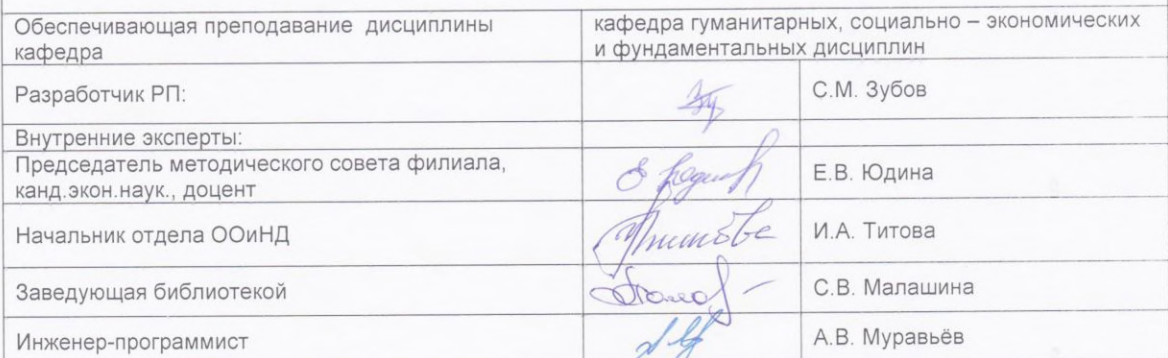 Обеспечивающая преподавание дисциплины кафедра гуманитарных, социально – экономических
кафедра и фундаментальных дисциплин
Разработчик РП: С.М. Зубов
Внутренние эксперты:
Председатель методического совета филиала,
канд.экон.наук., доцент Е.В. Юдина
Начальник отдела ООиНД И.А. Титова
Заведующая библиотекой С.В. Малашина
Инженер-программист А.В. Муравьёв